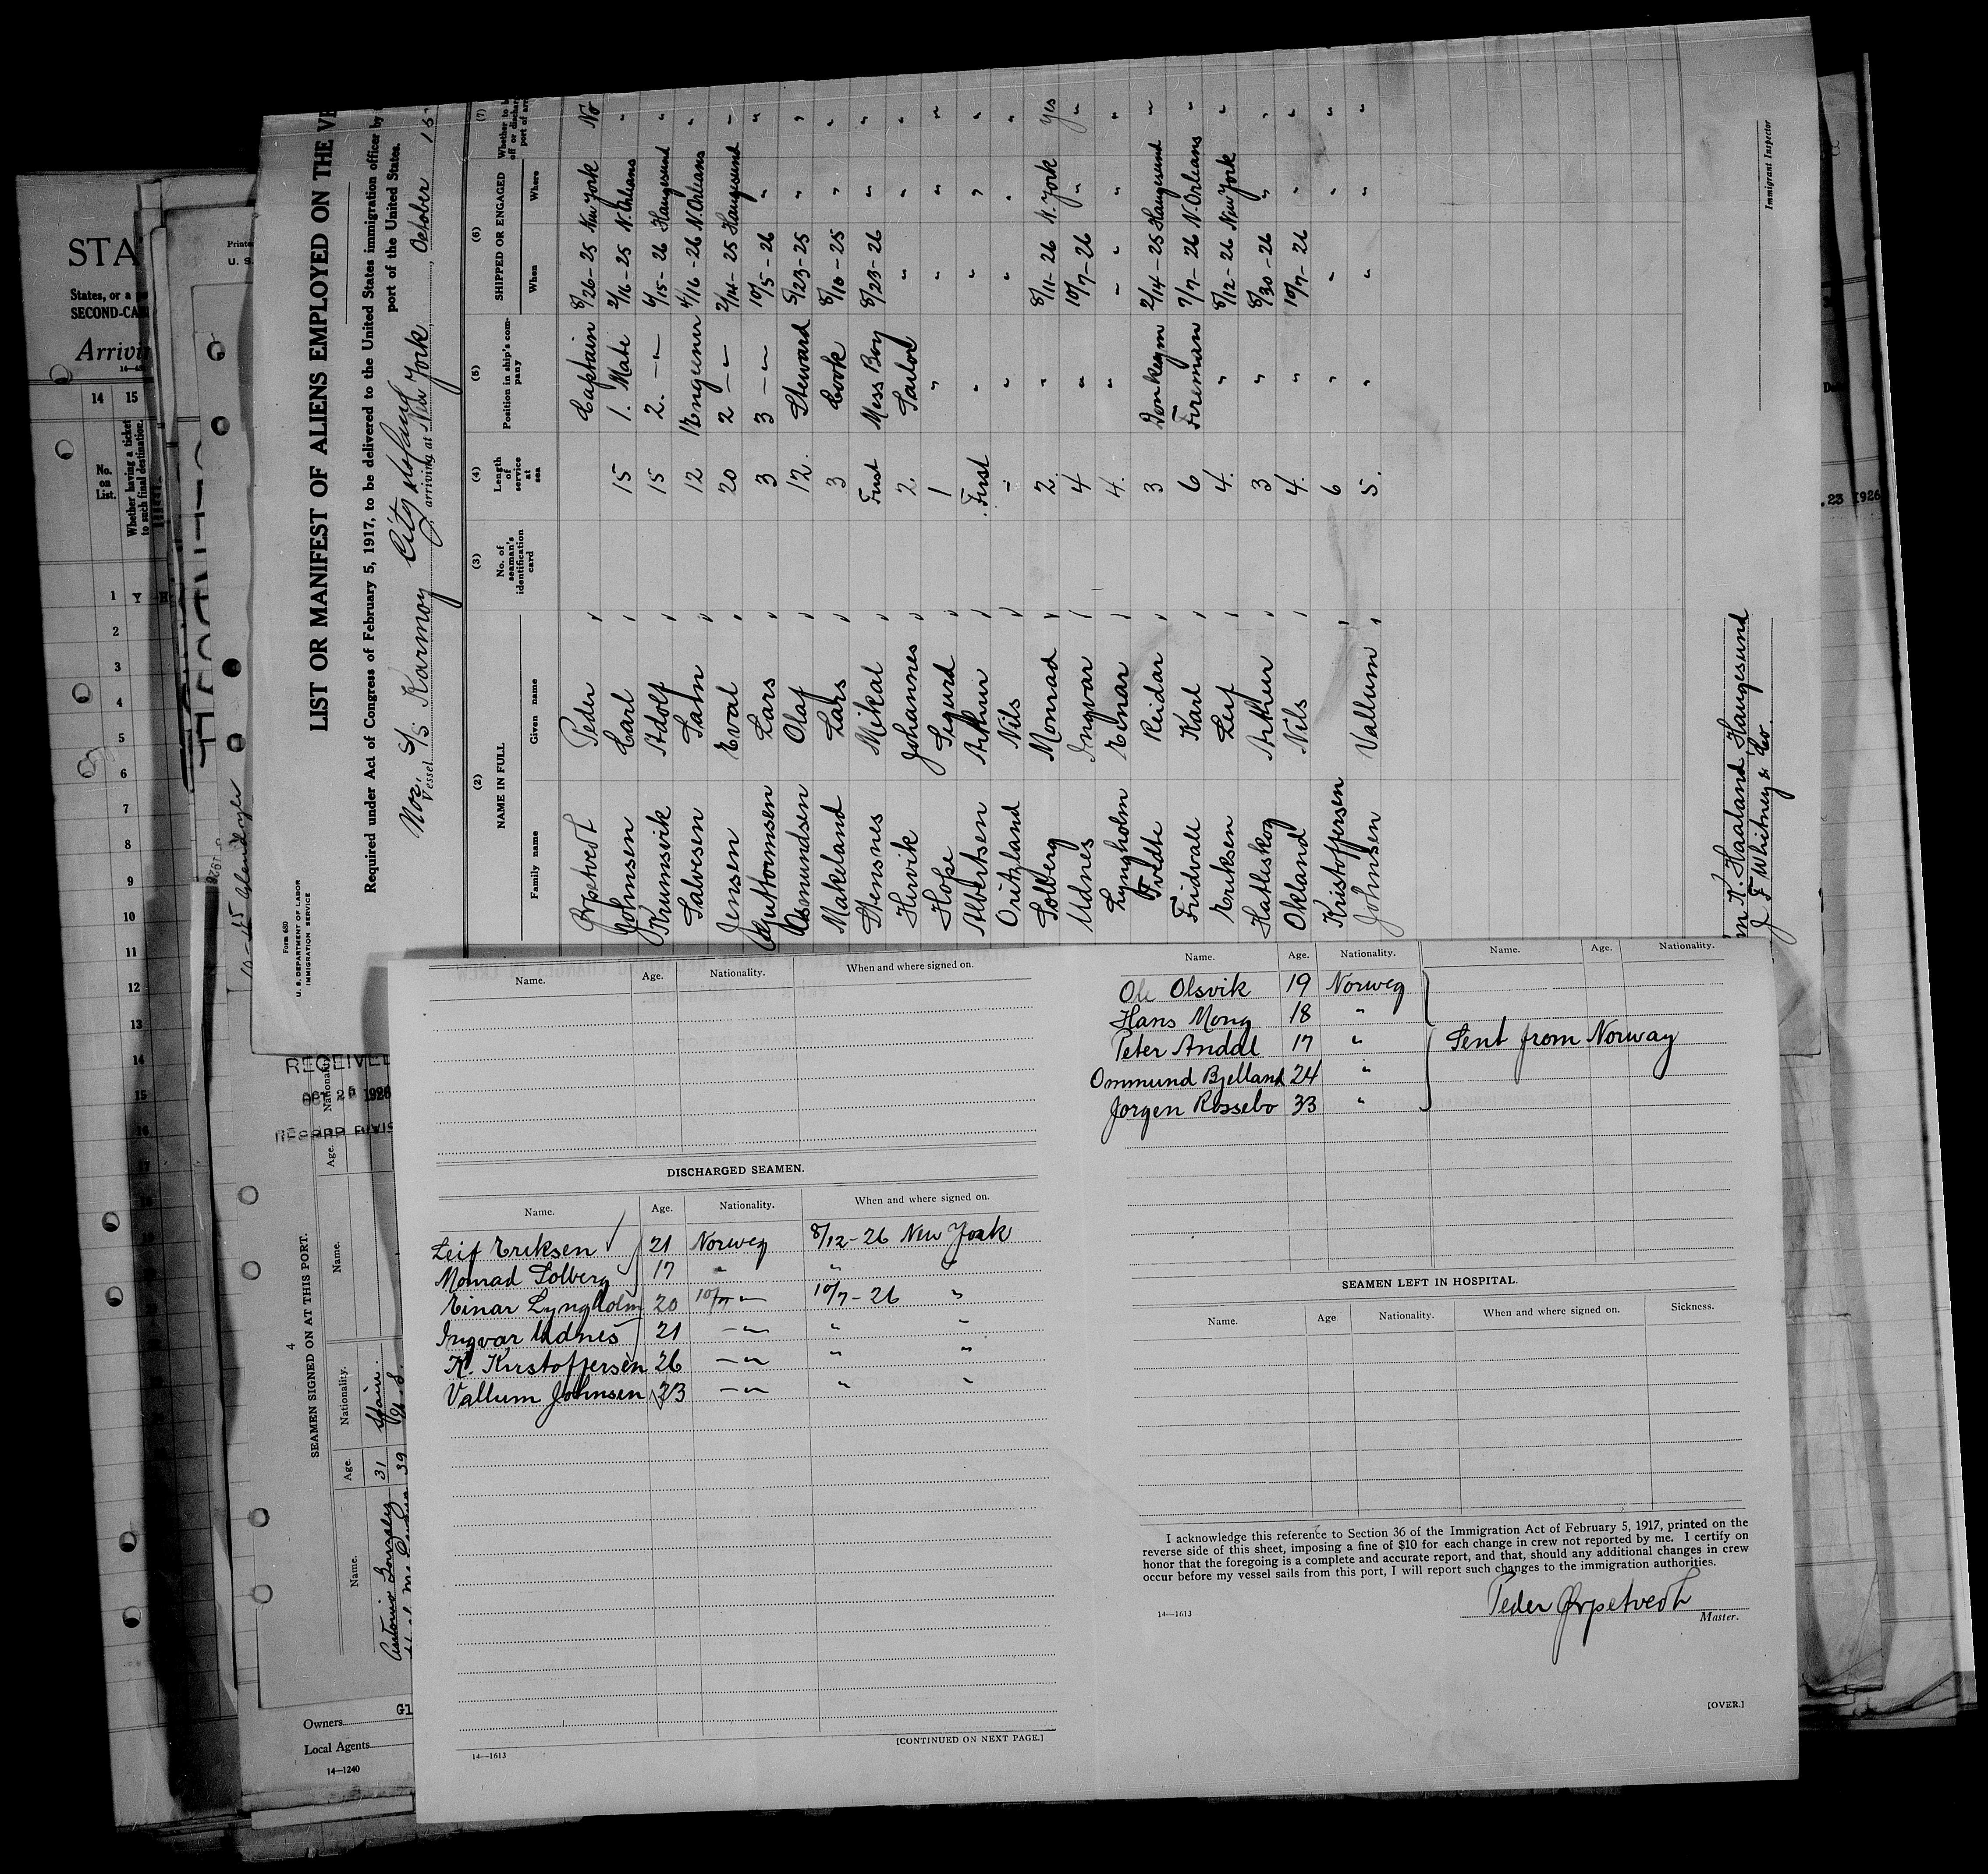 LIST OR MANIFEST OF ALIENS EMPLOYED ON THE VE
Required under Act of Congress of February 5, 1917, to be delivered to the United States immigration officer by
port of the United States.
Form 680
U. S. DEPARTMENT OF LABOR
IMMIGRATION SERVICE
Nor. S/S Karmoy
Vessel
arriving at New York, October 15
(2) (3) (4) (5) (6) (7)
NAME IN FULL
Family name Given name
No. of seaman's identification card
Length of service at sea
Position in ship's company
SHIPPED OR ENGAGED
When Where
Peder Captain 8/26-25 New York No
Johnsen Carl 15 1. Mate 2/16-25 N. Orleans "
Krumsvik Adolf 15 2. -"- 6/15-26 Haugesund "
Salvesen 12 1 Engineer 4/16-26 N. Orleans "
Jensen Eval 20 2 -"- 2/14-25 Haugesund "
Guttormsen Lars 3 3 -"- 10/5-26 " "
Asmundsen Olaf 12. Steward 5/23-25 " "
Makeland Lars 3 Cook 8/10-25 " "
Stensnes Mikal First Mess Boy 8/23-26 " "
Hervik Johannes 2. Sailor " " "
Hope Sigurd 1 " " " "
Albertsen Arthur First " " " "
Nils " " " " "
Solberg Monrad 2. " 8/11-26 N. York Yes
Udnes Ingvar 4 " 10/7-26 " "
Lyngholm Einar 4. " " " "
Tvedte Reidar 3 Donkeym 2/14-25 Haugesund "
Fridvall Karl 6 Fireman 7/7-26 N. Orleans "
Eriksen Leif 4. " 8/12-26 New York "
Hatleskog Arthur 3 " 8/30-26 " "
Okland Nils 4. " 10/7-26 " "
Kristoffersen 6 " " " "
Johnsen Vallum 5. " " " "
Haaland Haugesund
J F Whitney & Co.
Immigrant Inspector
STA
States, or a
SECOND-CA
Arrivi
14 15
No. on List.
Whether having a ticket to such final destination.
1
2
3
4
5
6
7
8
9
10
11
12
13
14
15
16
17
23 1926
RECEIVED
OCT 25 1926
RECORD DIVIS
4
SEAMEN SIGNED ON AT THIS PORT.
Name. Age. Nationality. Name. Age. Nationality
Antonio Gonzalez 31 Spain.
39 U. S.
Owners
Local Agents
14—1240
Name. Age. Nationality. When and where signed on.
DISCHARGED SEAMEN.
Name. Age. Nationality. When and where signed on.
Leif Eriksen 21 Norweg 8/12-26 New York
Monrad Solberg 17 " " "
Einar Lyngholm 20 10/7 -"- 10/7-26 "
Ingvar Udnes 21 -"- " "
K. Kristoffersen 26 -"- " "
Vallum Johnsen 23 -"- " "
14—1613
[CONTINUED ON NEXT PAGE.]
Name. Age. Nationality. Name. Age. Nationality.
Ole Olsvik 19 Norweg
Hans Mong 18 "
Peter Andal 17 " Sent from Norway
Ommund Bjelland 24 "
Jorgen Rossebo 33 "
SEAMEN LEFT IN HOSPITAL.
Name. Age Nationality. When and where signed on. Sickness.
I acknowledge this reference to Section 36 of the Immigration Act of February 5, 1917, printed on the
reverse side of this sheet, imposing a fine of $10 for each change in crew not reported by me. I certify on
honor that the foregoing is a complete and accurate report, and that, should any additional changes in crew
occur before my vessel sails from this port, I will report such changes to the immigration authorities.
Peder Ørpetvedt
Master.
14—1613
[OVER.]